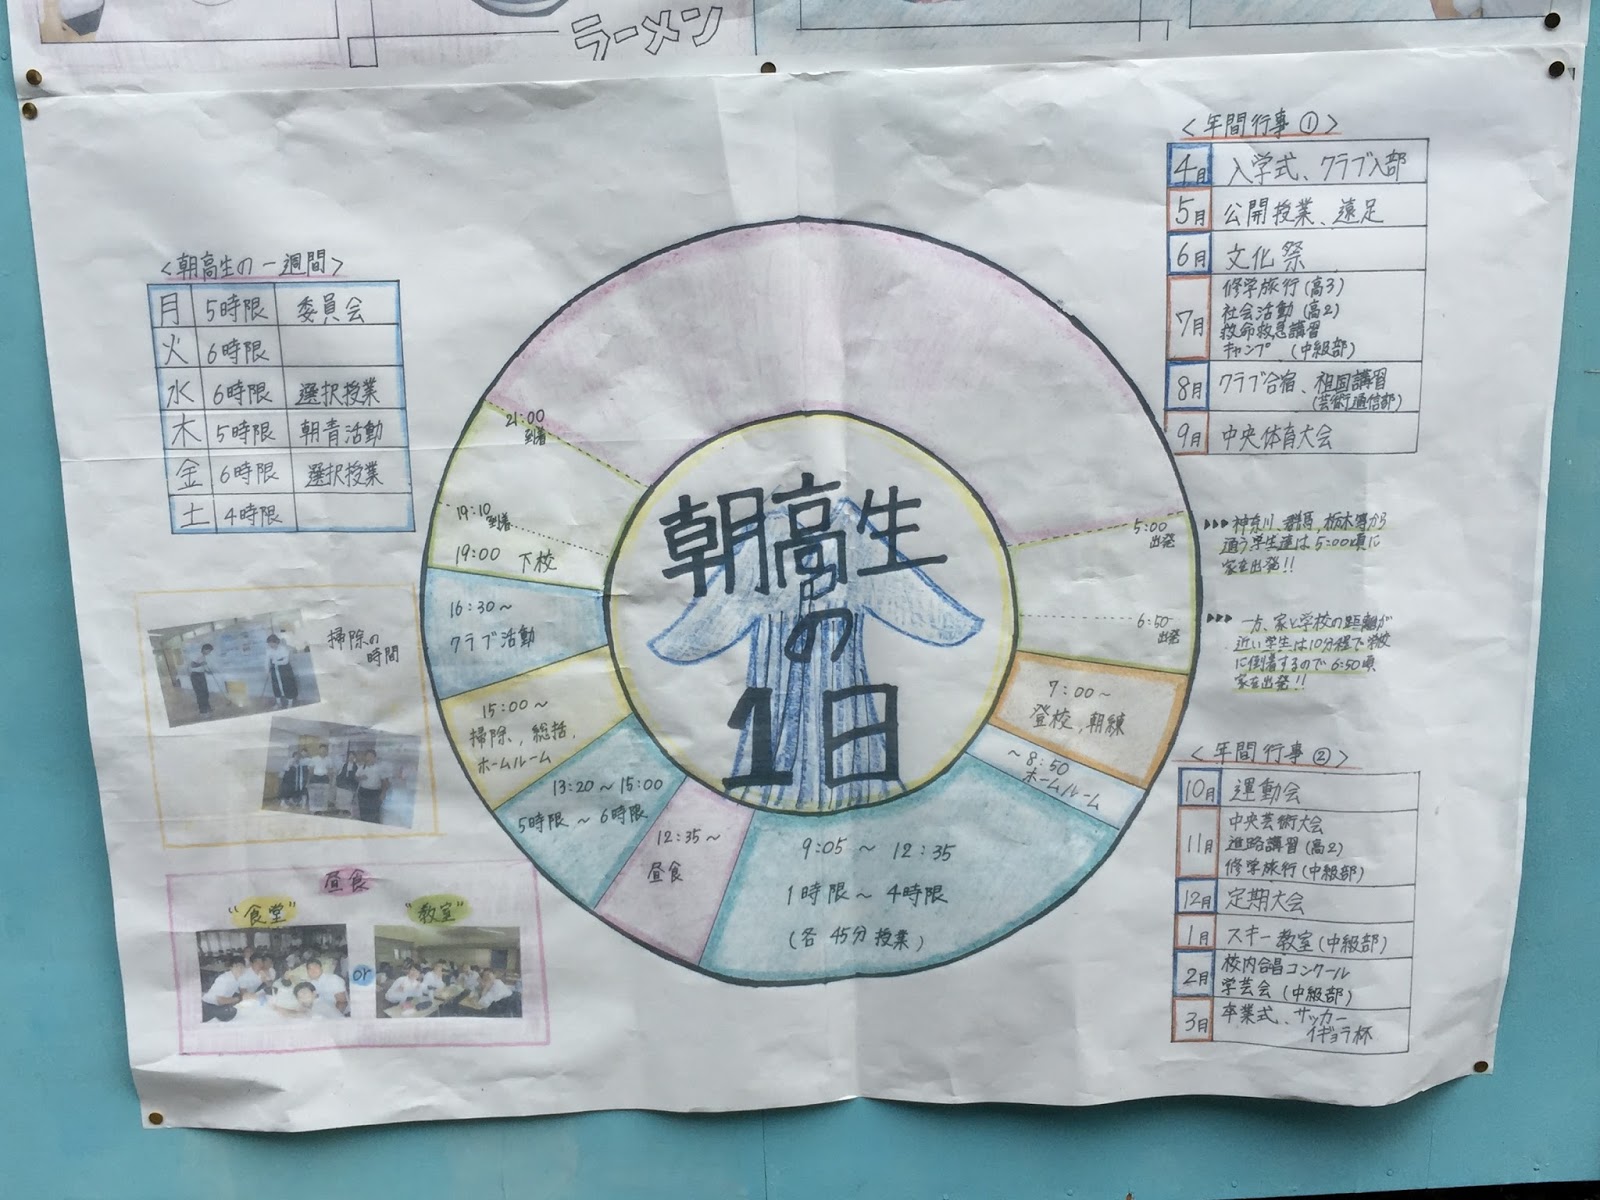 ラーメン
<朝高生の一週間>
月 5時限 委員会
火 6時限
水 6時限 選択授業
木 5時限 朝青活動
金 6時限 選択授業
土 4時限
掃除の
時間
昼食
"食堂"
or
"教室"
朝高生
の
1日
5:00
出発
6:50
出発
7:00~
登校,朝練
~8:50
ホームルーム
9:05 ~ 12:35
1時限~4時限
(各45分授業)
12:35~
昼食
13:20~15:00
5時限~6時限
15:00~
掃除,総括,
ホームルーム
16:30~
クラブ活動
19:00 下校
19:10
到着
21:00
到着
<年間行事①>
4月 入学式、クラブ入部
5月 公開授業、遠足
6月 文化祭
7月 修学旅行(高3)
社会活動(高2)
救命救急講習
キャンプ (中級部)
8月 クラブ合宿、祖国講習
(芸術通信部)
9月 中央体育大会
神奈川、群馬、栃木等から
通う学生達は5:00頃に
家を出発!!
一方、家と学校の距離が
近い学生は10分程で学校
に到着するので6:50頃
家を出発!!
<年間行事②>
10月 運動会
11月 中央芸術大会
進路講習(高2)
修学旅行(中級部)
12月 定期大会
1月 スキー教室(中級部)
2月 校内合唱コンクール
学芸会(中級部)
3月 卒業式、サッカー
イギョラ杯